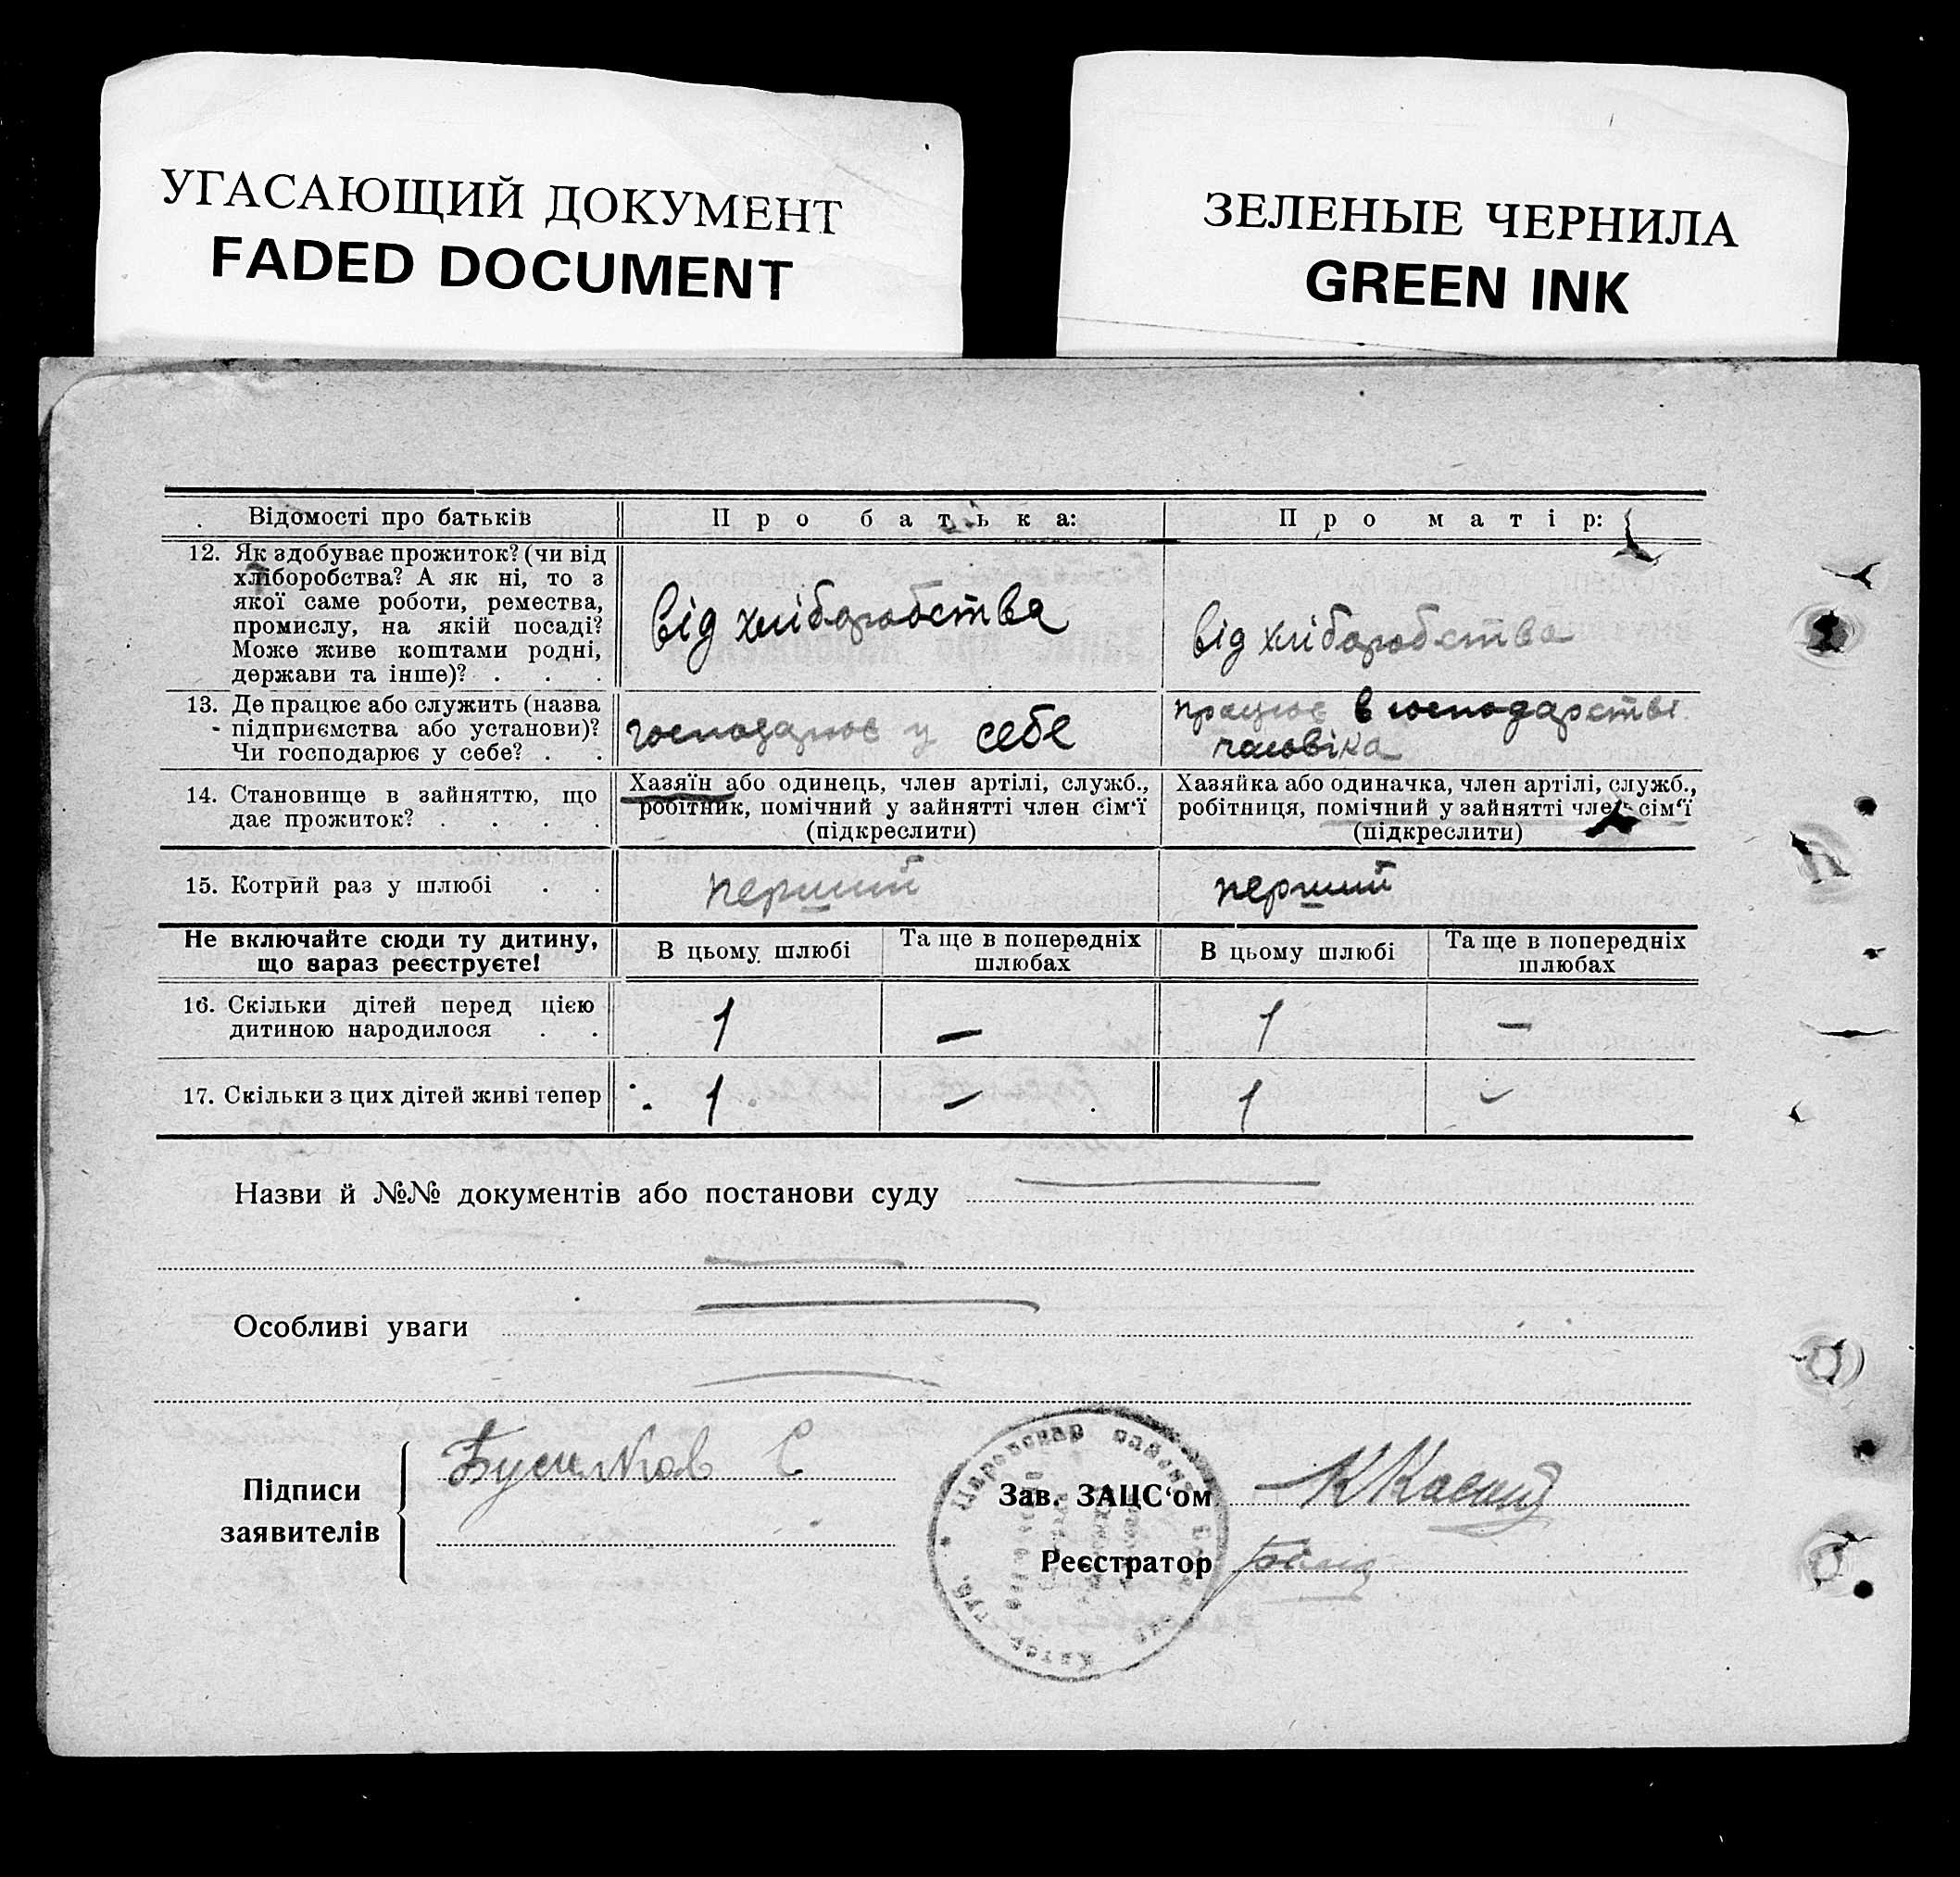 УГАСАЮЩИЙ ДОКУМЕНТ
FADED DOCUMENT
ЗЕЛЕНЫЕ ЧЕРНИЛА
GREEN INK
Відомості про батьків
Про батька:
Про матір:
12. Як здобуває прожиток? (чи від
хліборобства? А як ні, то з
якої саме роботи, ремества,
промислу, на якій посаді?
Може живе коштами родні,
держави та інше)? . . .
від хліборобства
від хліборобства
13. Де працює або служить (назва
підприємства або установи)?
Чи господарює у себе? . .
господарює у себе
працює в господарстві
чоловіка
14. Становище в зайняттю, що
дає прожиток? . . . .
Хазяїн або одинець, член артілі, служб.,
робітник, помічний у зайнятті член сім'ї
(підкреслити)
Хазяйка або одиначка, член артілі, служб.,
робітниця, помічний у зайнятті член сім'ї
(підкреслити)
15. Котрий раз у шлюбі . .
перший
перший
Не включайте сюди ту дитину,
що вараз реєструєте!
В цьому шлюбі
Та ще в попередніх
шлюбах
В цьому шлюбі
Та ще в попередніх
шлюбах
16. Скільки дітей перед цією
дитиною народилося . .
1
—
1
—
17. Скільки з цих дітей живі тепер
1
—
1
—
Назви й №№ документів або постанови суду
Особливі уваги
Підписи
заявителів
С
Зав. ЗАЦС'ом
Реєстратор